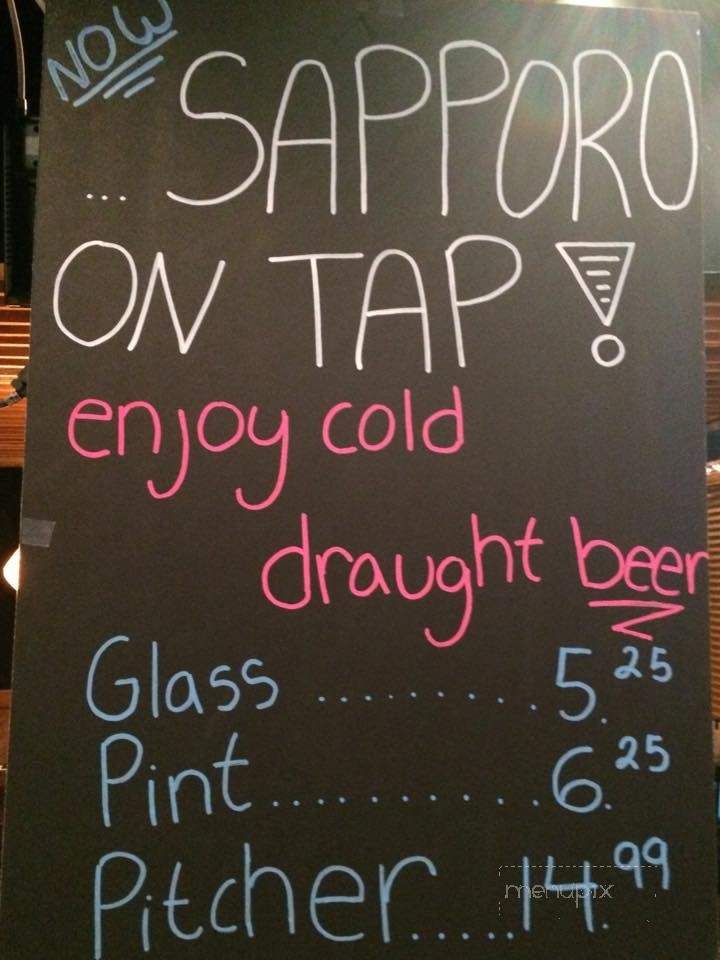 NOW
... SAPPORO
ON TAP!
enjoy cold
draught beer
Glass .......... 5.25
Pint ............ 6.25
Pitcher ...... 14.99
menupix